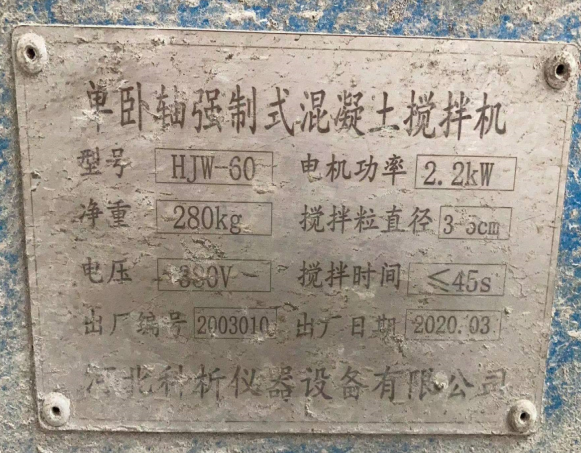 单卧轴强制式混凝土搅拌机
型号 HJW-60 电机功率 2.2kW
净重 280kg 搅拌粒直径 3-5cm
电压 380V 搅拌时间 ≤45s
出厂编号 2003010 出厂日期 2020.03
河北科析仪器设备有限公司